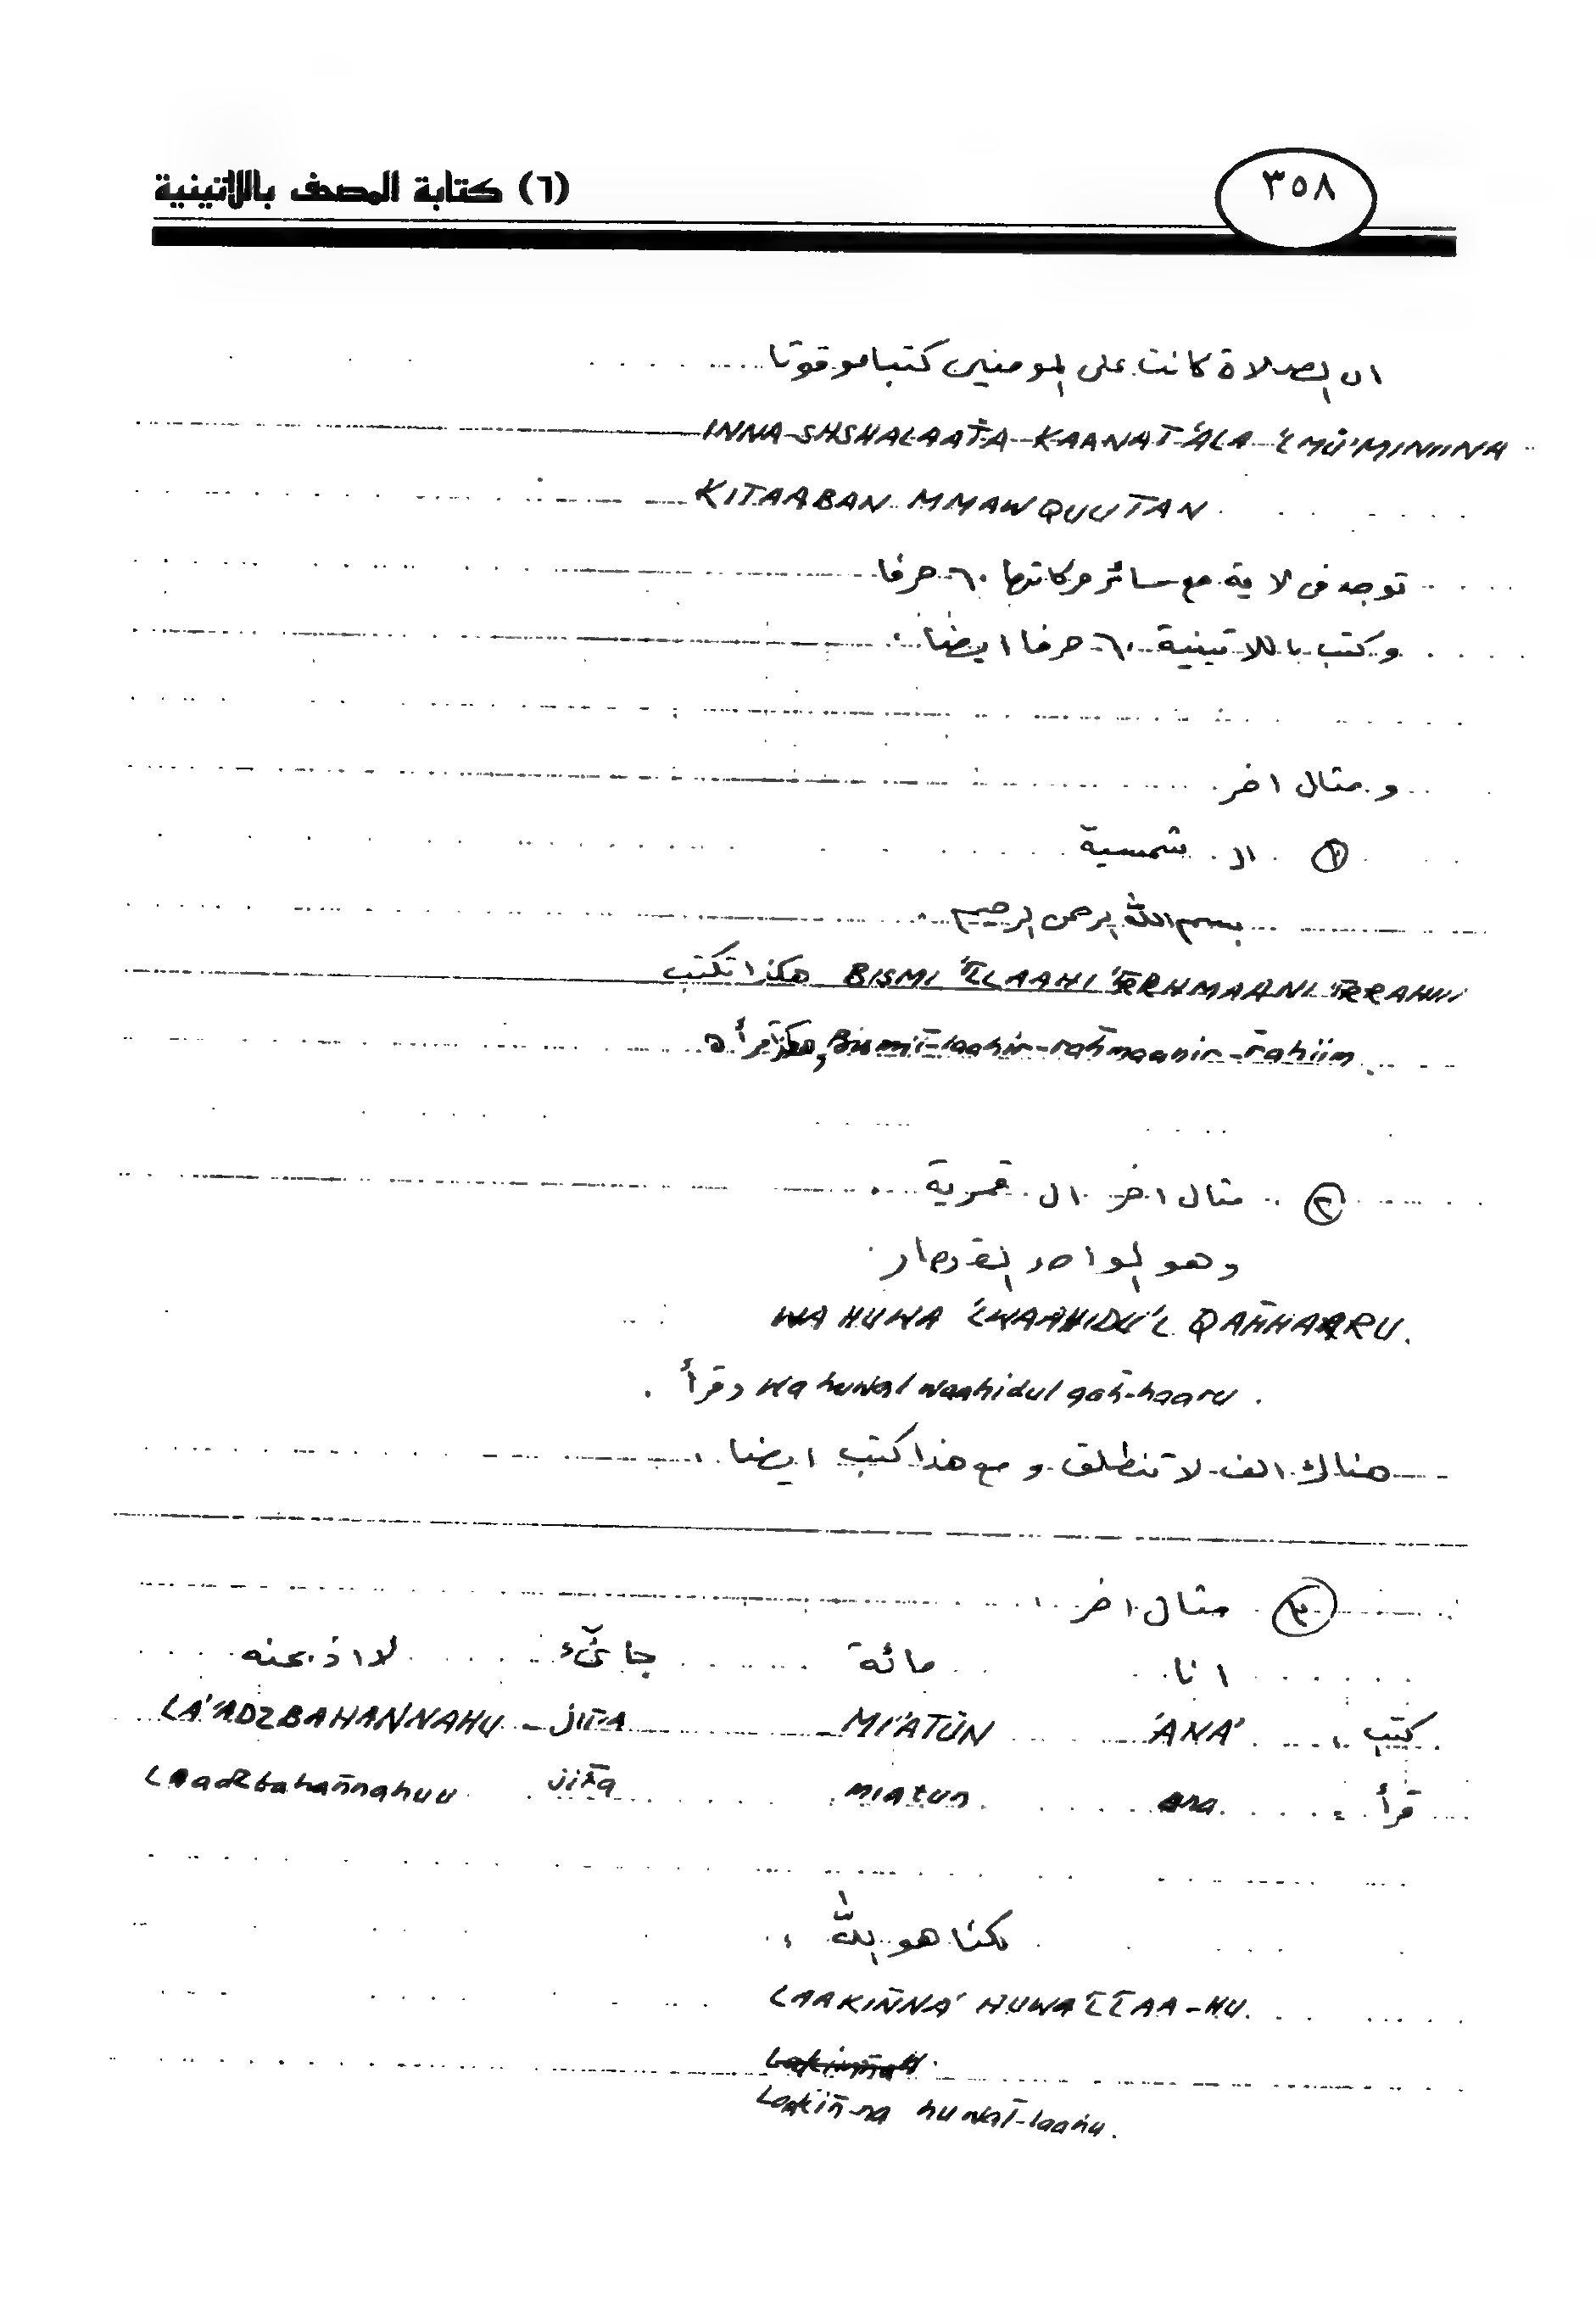 (٦) كتابة المصحف باللاتينية
٣٥٨
ان الصلاة كانت على المومنين كتبا موقوتا
INNA-SHSHALAATA-KAANAT-'ALA-'LMU'MINIINA
KITAABAN MMAWQUUTAN
توجد فى لا ية مع سائر حركاتها ٦٠ حرفا
وكتب باللاتينية ٦٠ حرفا ايضا
و مثال اخر
① ال شمسية
بسم الله الرحمن الرحيم
هكذا تكتب BISMI 'L̄LAAHI 'R̄RHMAANI 'R̄RAHII
وهكذا قرأ ه Bismil̄-laahir-rah̄maanir-r̄ahiim.
② مثال اخر ال قمرية
وهو الواحد القهار
WA HUWA 'LWAAHIDU'L QAH̄HAARU.
وقرأ wa huwal waahidul qah̄-haaru.
هناك الف لا تنطلق و مع هذا كتب ايضا
③ مثال اخر
انا مائة جائء لا اذبحنه
كتب : 'ANA' MI'ATŪN JIĪA LA''ADZBAHANNAHU
قرأ : ana miatun jiīa Laadzbahan̄nahuu
لكنا هو الله
LAAKIN̄NA' HUWA'L̄L̄AA-HU.
Laakin̄-na huwal̄-laahu.